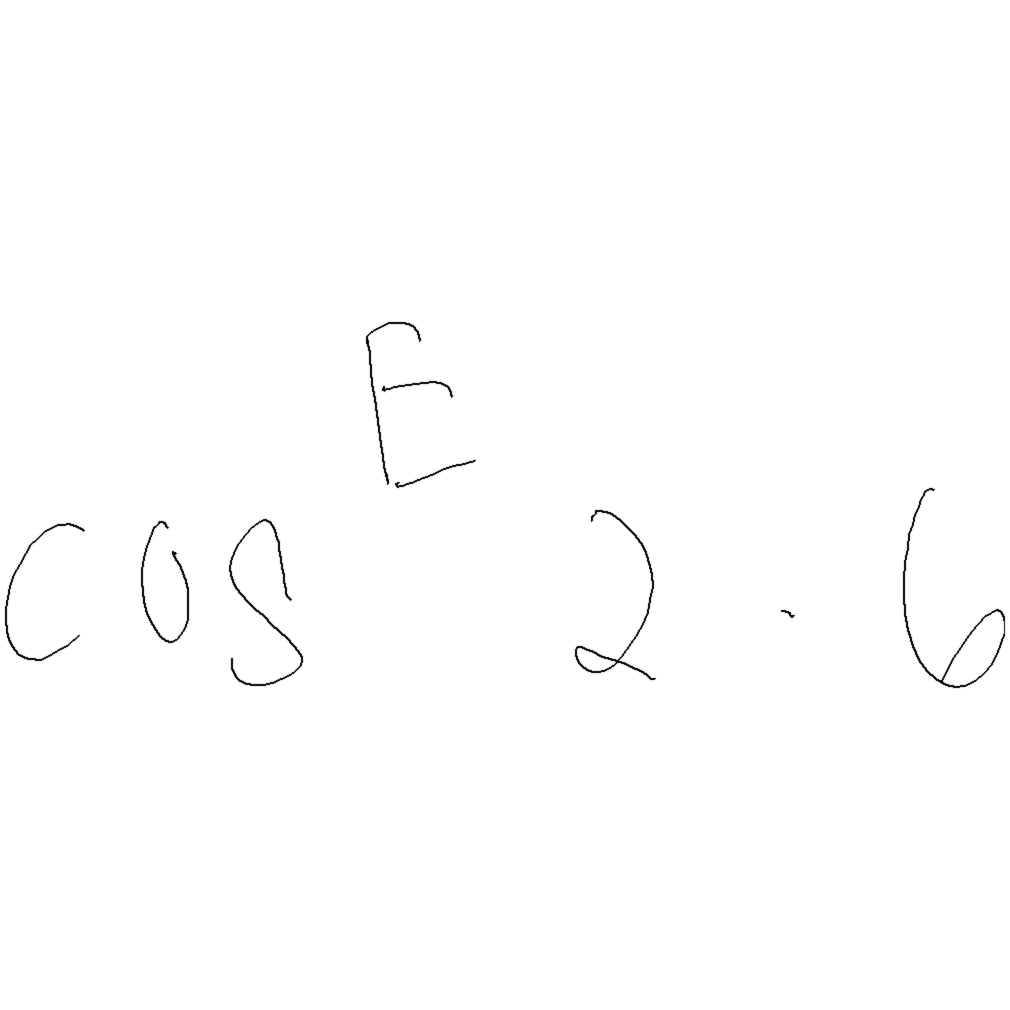 cos^E 2.6